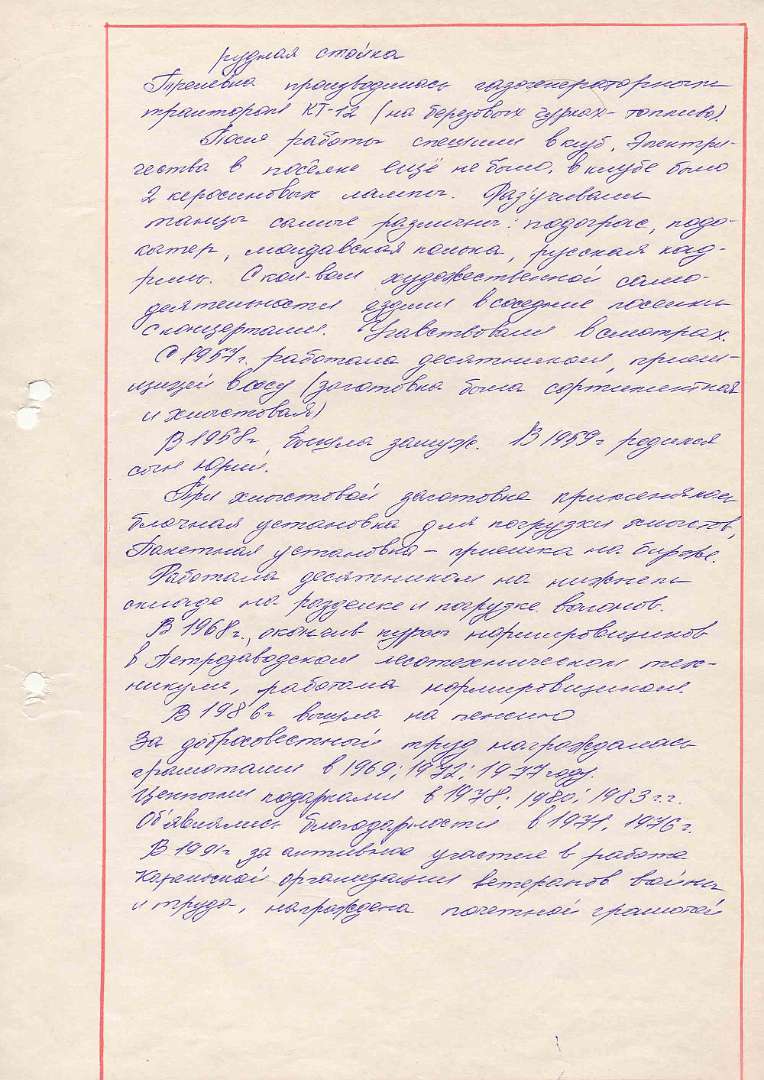 рудная стойка
Трелевка производилась газогенераторными
тракторами КТ-12 (на березовых чурках - топливо).
После работы спешили в клуб. Электри-
чества в посёлке ещё не было, в клубе было
2 керосиновых лампы. Разучивали
танцы самые различны: подеграс, поде-
катер, молдавская полька, русская кад-
риль. С кол-вом художественной само-
деятельности ездили в соседние поселки
с концертами. Учавствовали в смотрах.
С 1957г. работала десятником, прием-
щицей в лесу (заготовка была сортиментная
и хлыстовая)
В 1958г. вышла замуж. В 1959г родился
сын Юрий.
При хлыстовой заготовке применялась
блочная установка для погрузки хлыстов,
Пакетная установка - приемка на бирже.
Работала десятником на нижнем
складе на разделке и погрузке вагонов.
В 1968г., окончив курсы нормировщиков
в Петрозаводском лесотехническом тех-
никуме, работала нормировщиком.
В 1986г вышла на пенсию
За добросовестный труд награждалась
грамотами в 1969; 1972; 1977 году.
Ценными подарками в 1978; 1980; 1983 г.г.
Объявлялись благодарности в 1971, 1976г.
В 1991г за активное участие в работе
Карельской организации ветеранов войны
и труда, награждена почетной грамотой